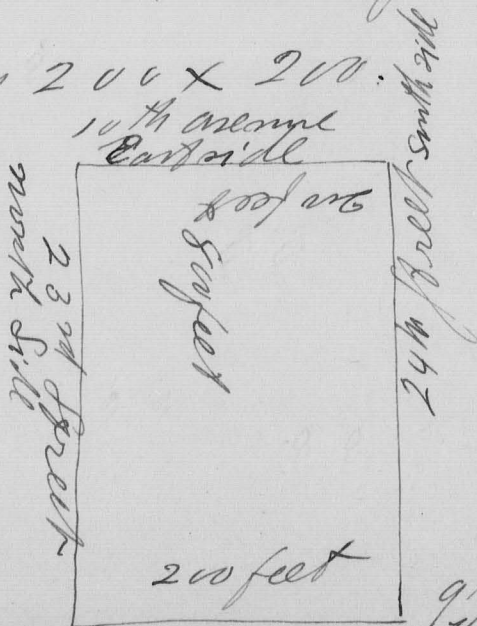 200 x 200.
10th avenue
Eastside
200 feet
800 feet
23rd Street
north Side
24th Street South side
200 feet